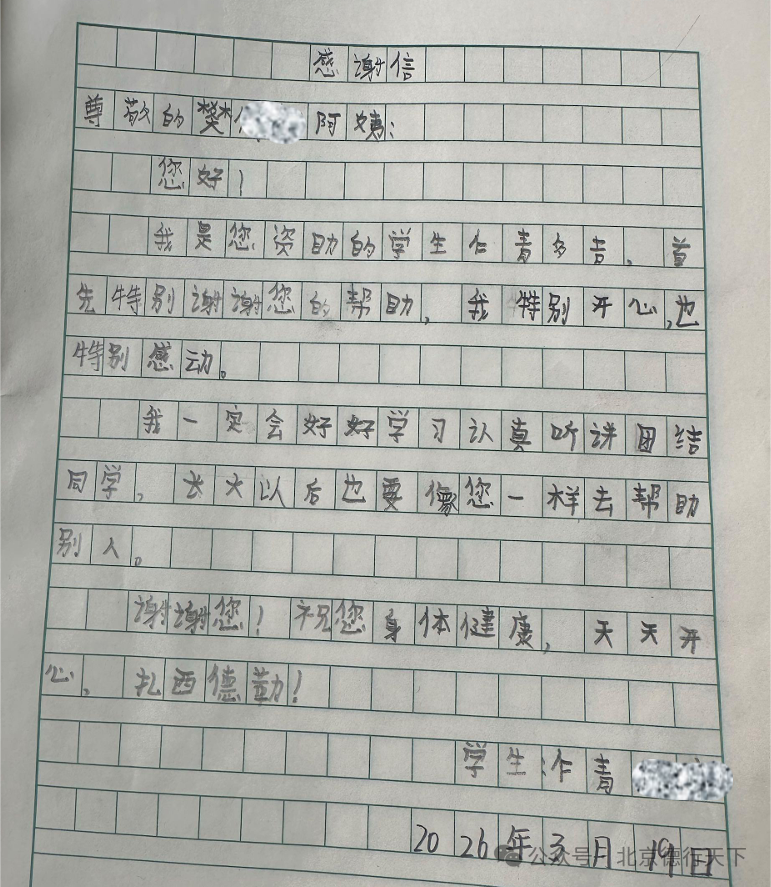 感谢信
尊敬的樊 阿姨:
您好!
我是您资助的学生仁青多吉,首
先特别谢谢您的帮助,我特别开心,也
特别感动。
我一定会好好学习认真听讲团结
同学,长大以后也要像您一样去帮助
别人。
谢谢您!祝您身体健康,天天开
心。扎西德勤!
学生:仁青
2026年3月19日
公众号 北京德行天下